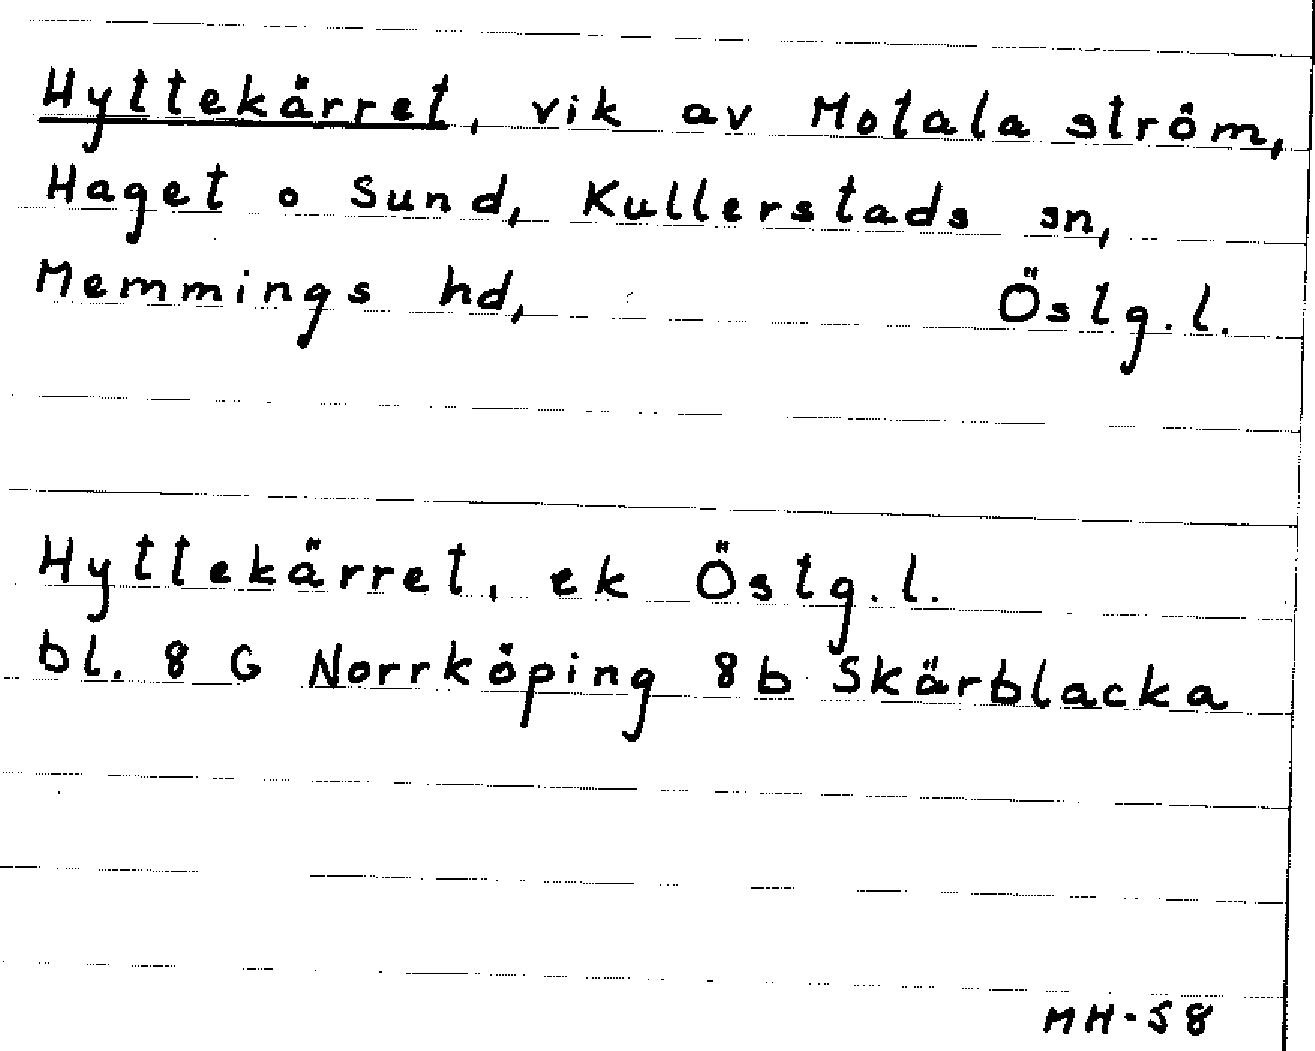 Hyttekärret, vik av Motala ström,
Haget o Sund, Kullerstads sn,
Memmings hd, Östg. l.
Hyttekärret, ek Östg. l.
bl. 8 G Norrköping 8b Skärblacka
MH-58